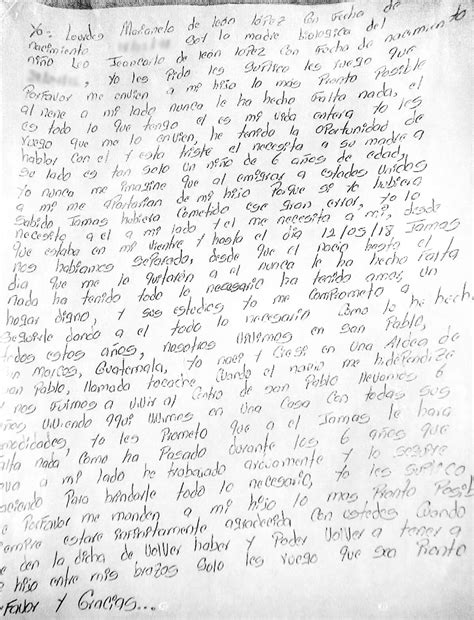 Yo: Lourdes Marianela de león lópez con fecha de
nacimiento soy la madre biologica del
niño Leo Jeancarlo de león lopez con fecha de nacimiento
, yo les Pido les suplico les ruego que
Porfavor me envien a mi hijo lo más Pronto Posible
al nene a mi lado nunca le ha hecho falta nada, el
es todo lo que tengo el es mi vida entera yo les
ruego que me lo envien, he tenido la oportunidad de
hablar con el y esta triste el necesita a su madre a
su lado es tan solo un niño de 6 años de edad,
yo nunca me imagine que al emigrar a estados unidos
a mi me apartarian de mi hijo Porque si yo hubiera
sabido Jamas hubiera cometido ese gran error, yo lo
necesito a el a mi lado y el me necesita a mi, desde
que estaba en mi vientre y hasta el dia 12/05/18 Jamas
nos habiamos separado, desde que el nacio hasta el
dia que me lo quitarón a el nunca le ha hecho falta
nada ha tenido todo lo necesario ha tenido amor, un
hogar digno, y sus estedes yo me comprometo a
seguirle dando a el todo lo necesario como lo he hech
todos estos años, nosotros vivimos en san Pablo,
San Marcos, Guatemala, yo naci y creci en una Aldea de
san Pablo, llamada tocache, cuando el nacio me independize
y nos fuimos a vivir al centro de san Pablo llevamos 6
años viviendo aqui vivimos en una casa con todas sus
comodidades, yo les Prometo que a el Jamas le hara
falta nada, como ha Pasado durante los 6 años que
lleva a mi lado he trabajado arduamente y lo seguire
haciendo Para brindarle todo lo necesario, yo les suplico
Porfavor me manden a mi hijo lo mas Pronto Posible
siempre estare infinitamente agradecida con ustedes cuando
me den la dicha de volver haber y Poder volver a tener a
mi hijo entre mis brazos solo les ruego que sea Pronto
Porfavor y Gracias...